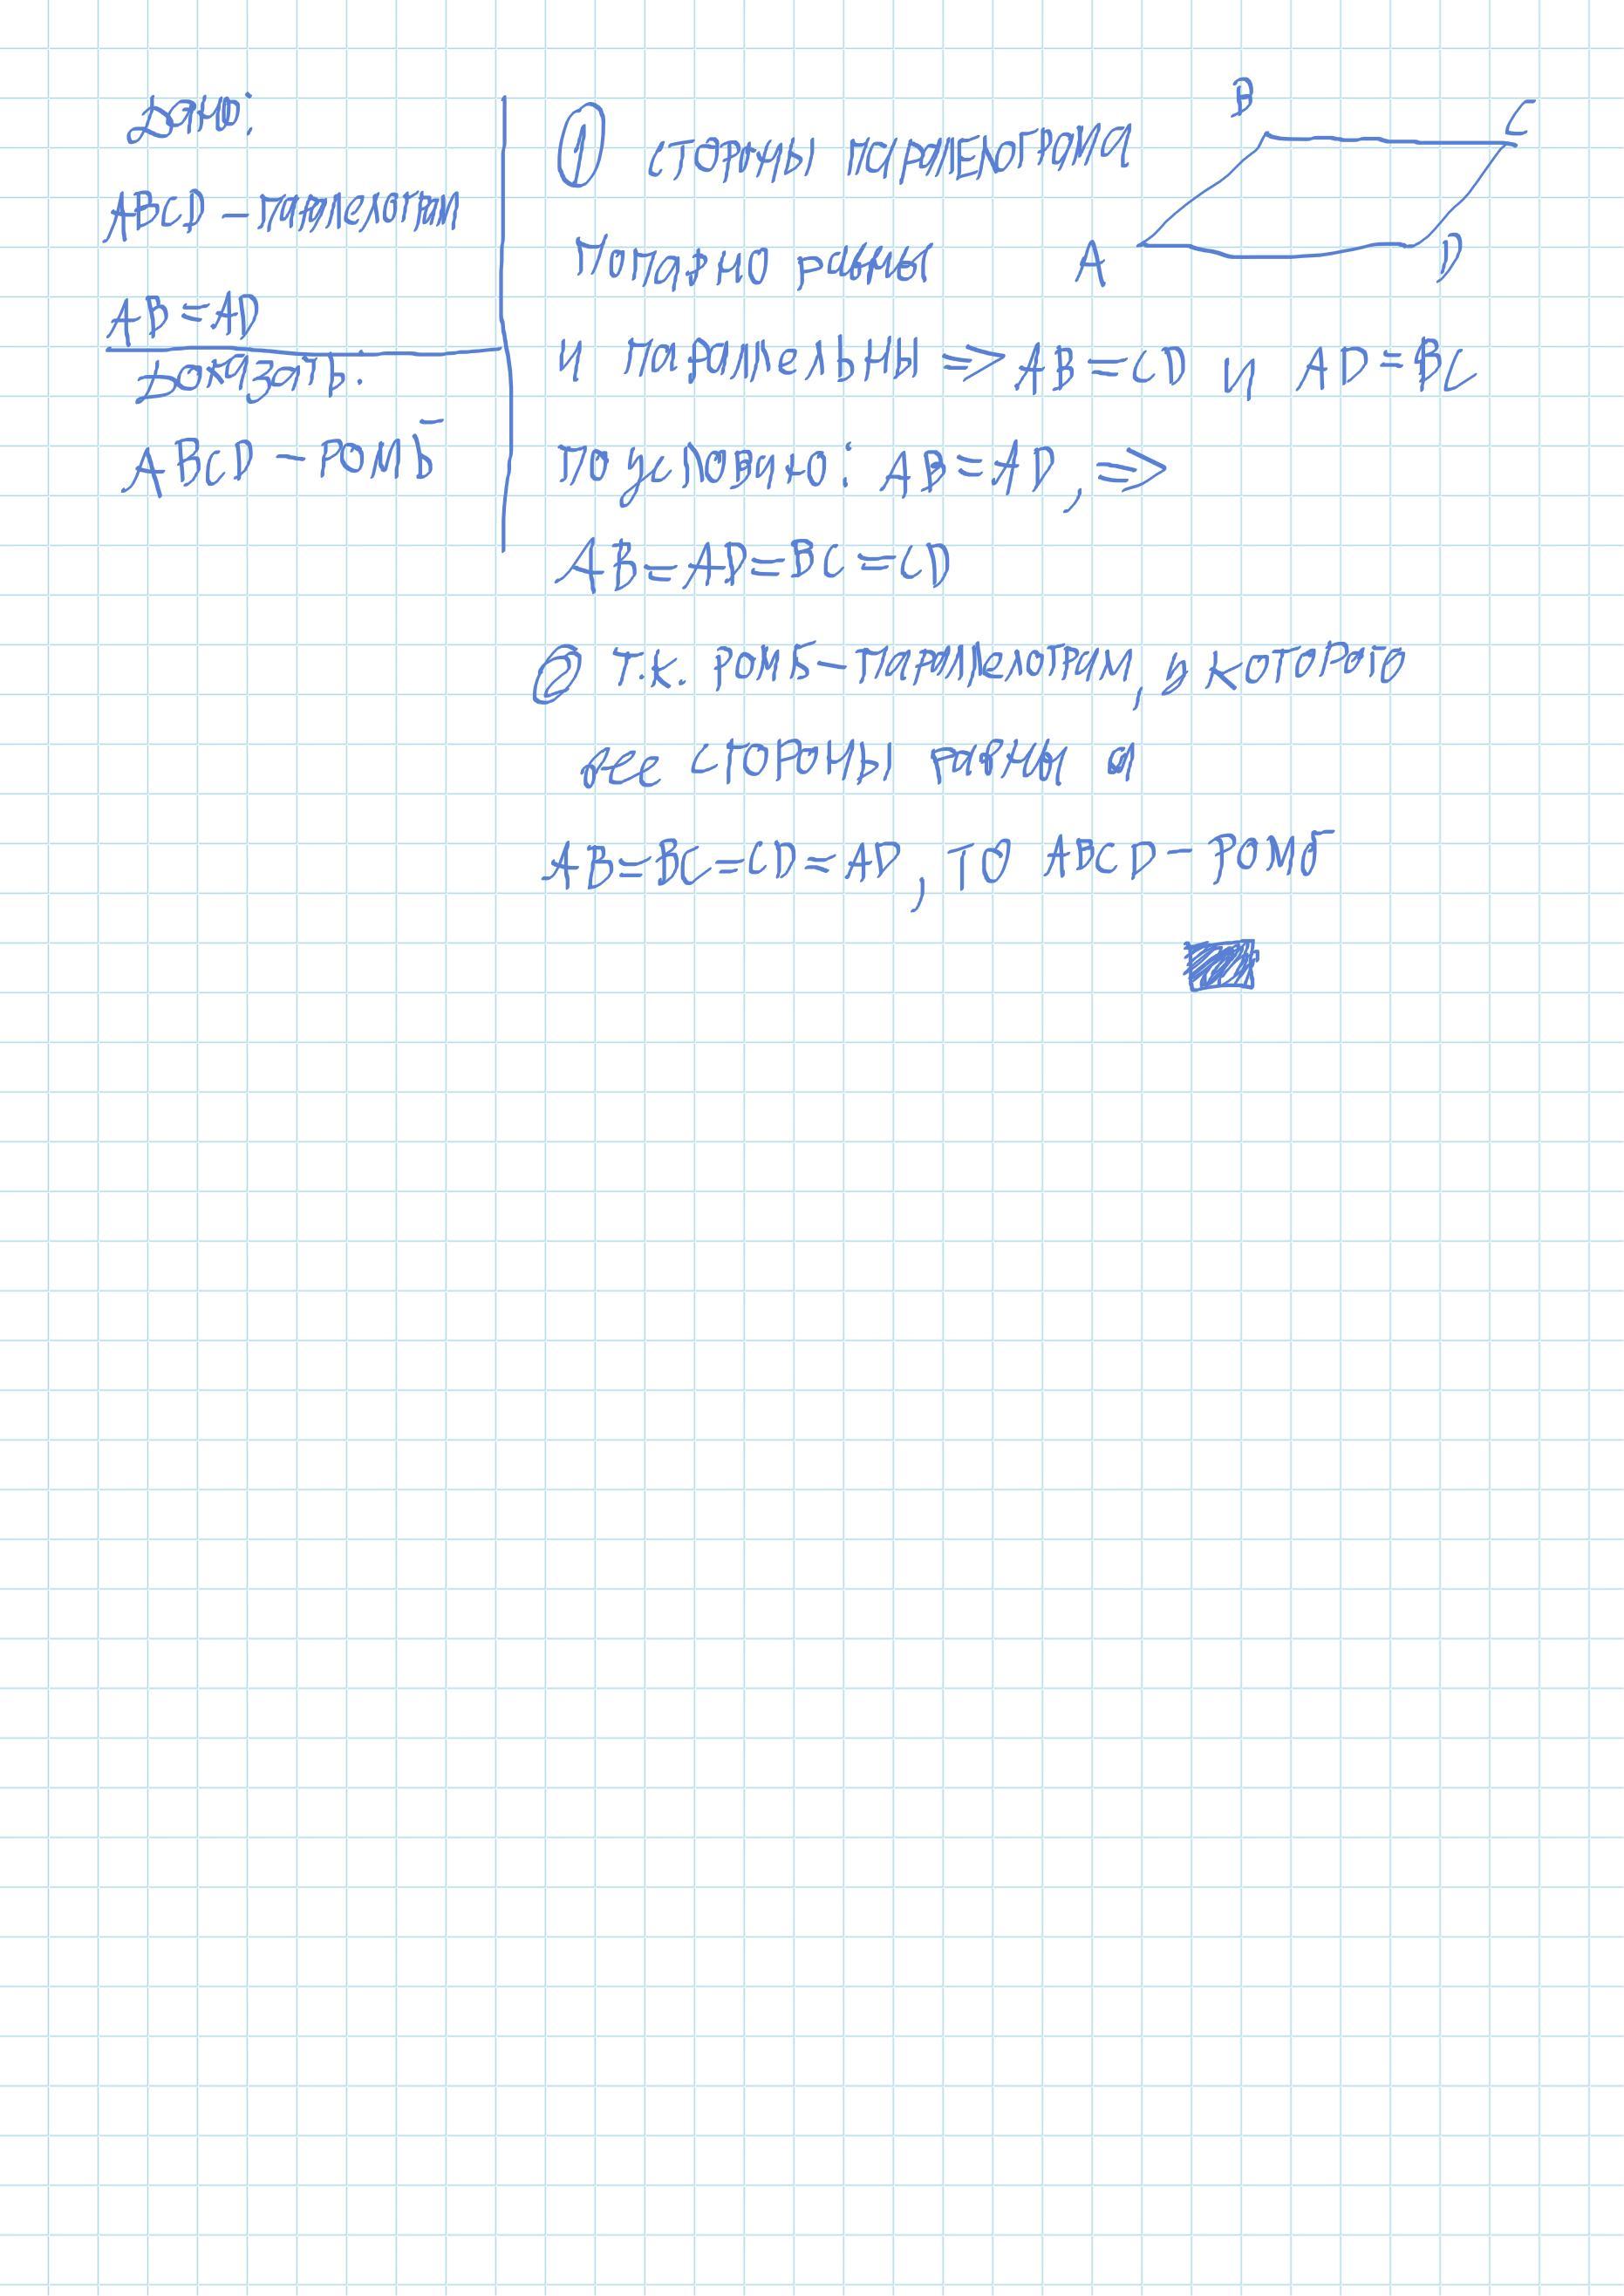 Дано:
ABCD – параллелограм
AB = AD
Доказать:
ABCD – ромб
① стороны паралелограма
попарно равны
и параллельны => AB = CD и AD = BC
по условию: AB = AD, =>
AB = AD = BC = CD
② т.к. ромб – параллелограм, у которого
все стороны равны и
AB = BC = CD = AD, то ABCD – ромб
B
C
A
D